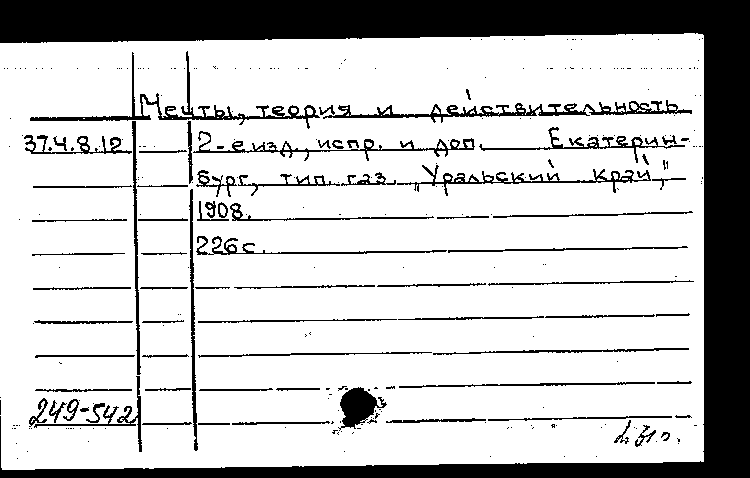 Мечты, теория и действительность
37.4.8.12 2-е изд., испр. и доп. Екатерин-
бург, тип. газ. „Уральский край,"
1908.
226 с.
249-542